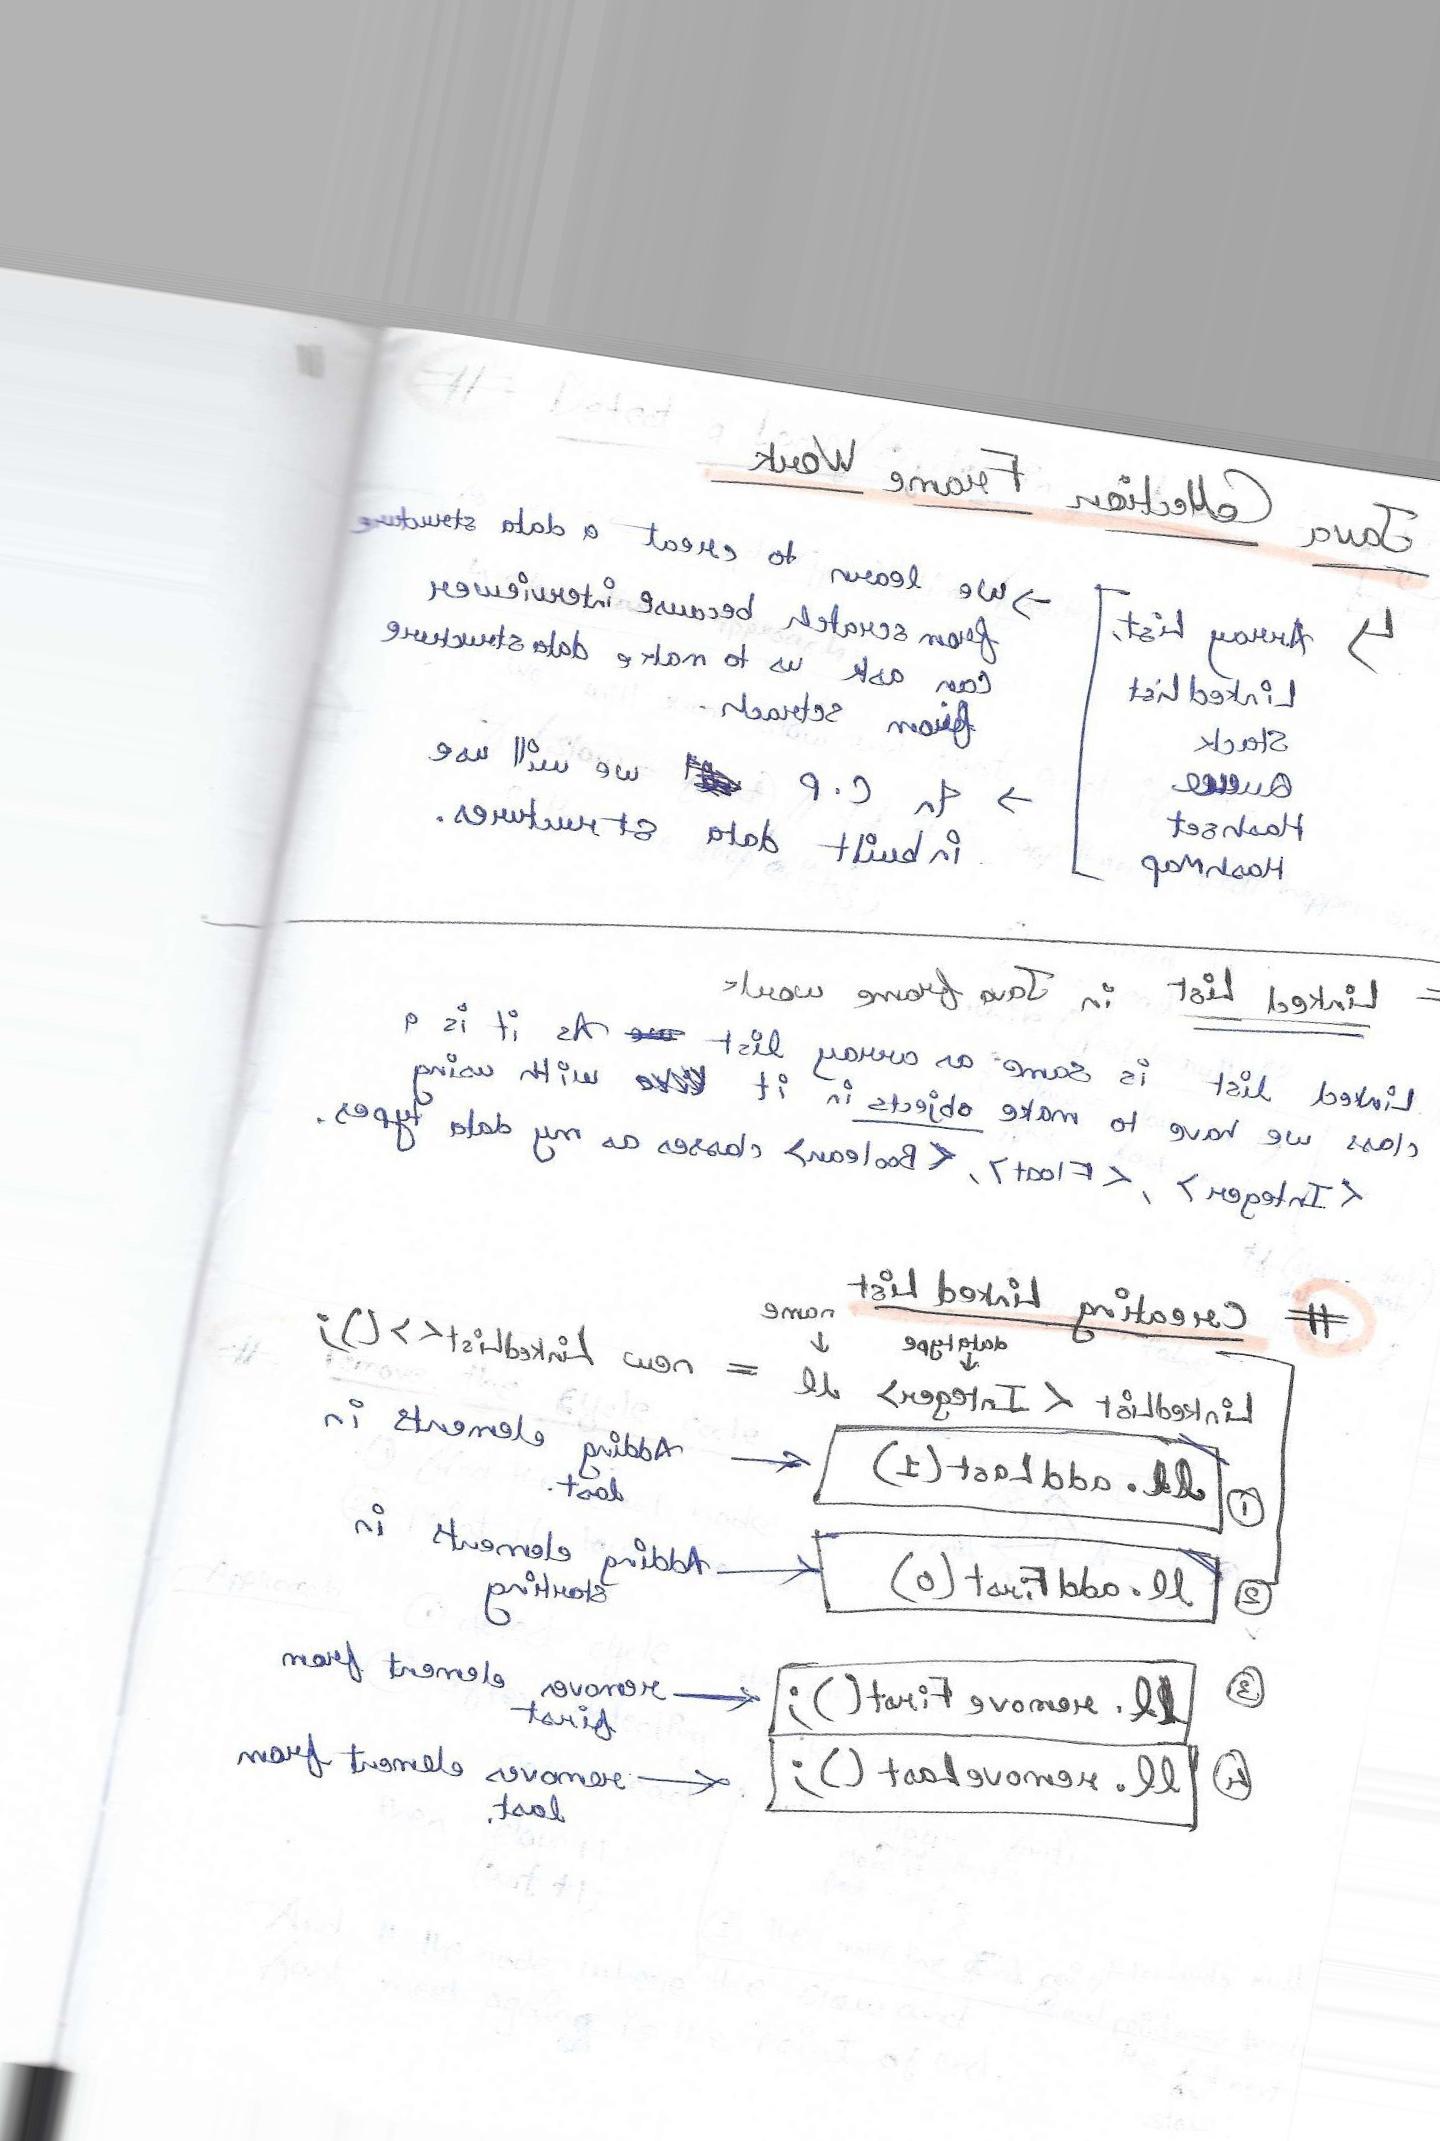 Java Collection Frame Work
↳ Array List,
Linked List
Stack
Queue
Hashset
HashMap
→ we learn to creat a data structure
from scratch because interviewer
can ask us to make data structure
from setrach.
→ In C.P we will use
inbuilt data structures.
= Linked List in Java frame work
Linked list is same as array list As it is a
class we have to make objects in it with using
<Integer>, <Float>, <Boolean> classes as my data types.
# Creating Linked List
datatype name
↓ ↓
LinkedList <Integer> ll = new LinkedList<>();
① ll.addLast(1) ← Adding elements in
last.
② ll.addFirst(0) ← Adding elements in
starting
③ ll.removeFirst(); ← remover element from
first
④ ll.removeLast(); ← removes element from
last.